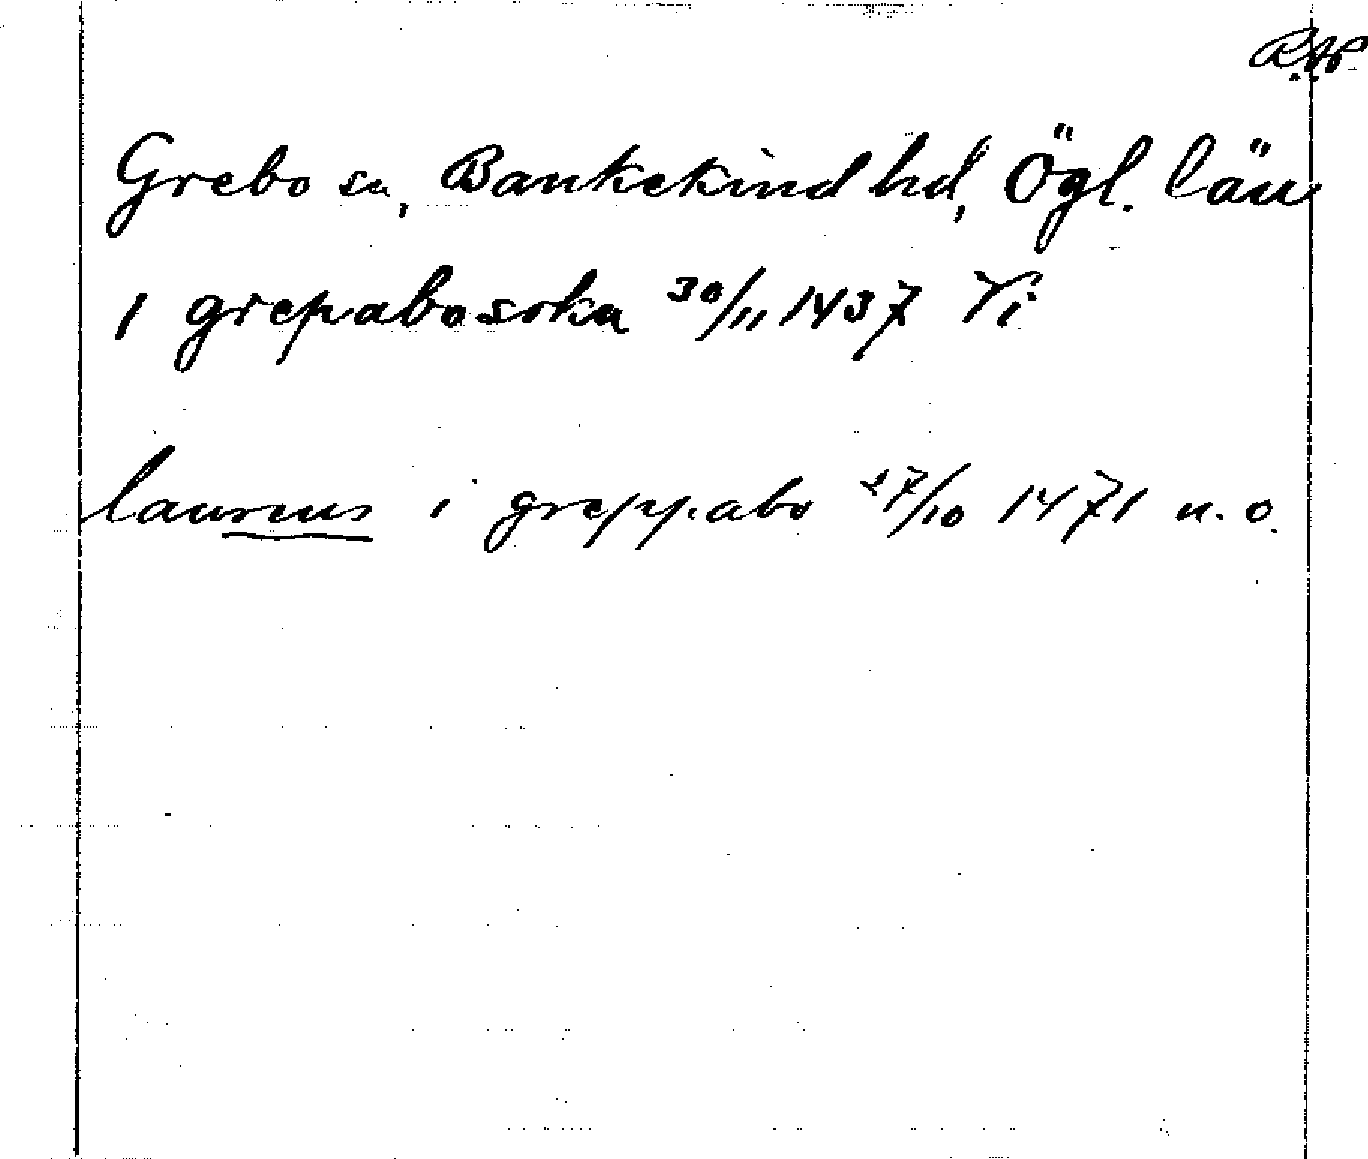 R.A.P.
Grebo sn, Bankekind hd, Ögl. län
i grepabosokn 30/11 1437 Vi
laurens i greppabo 27/10 1471 u. o.